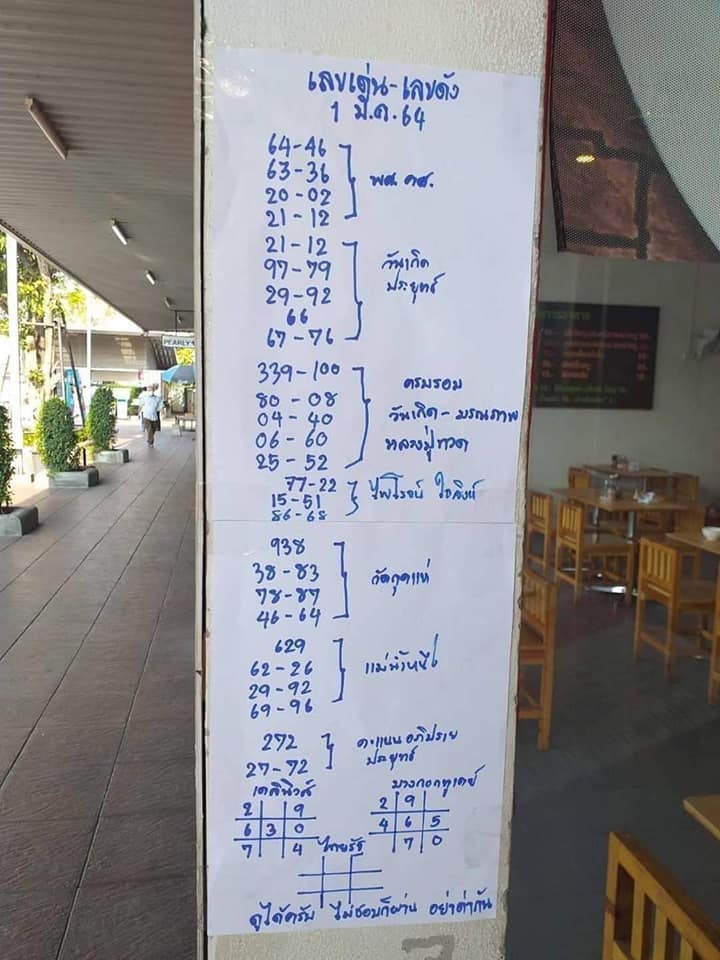 เลขเด่น-เลขดัง
1 มี.ค.64
64-46
63-36
20-02
21-12
พศ. คศ.
21-12
97-79
29-92
66
67-76
วันเกิด
ประยุทธ์
339-100
80-08
04-40
06-60
25-52
ครบรอบ
วันเกิด-มรณภาพ
หลวงปู่ทวด
77-22
15-51
86-68
ไพโรจน์ ใจสิงห์
938
38-83
78-87
46-64
629
62-26
29-92
69-96
แม่น้ำหนึ่ง
272
27-72
คะแนนอภิปราย
ประยุทธ์
เดลินิวส์
2 9
6 3 0
7 4
บางกอกทูเดย์
2 9
4 6 5
7 0
ไทยรัฐ
ดูได้ครับ ไม่ชอบก็ผ่าน อย่าด่ากัน
PEARLY